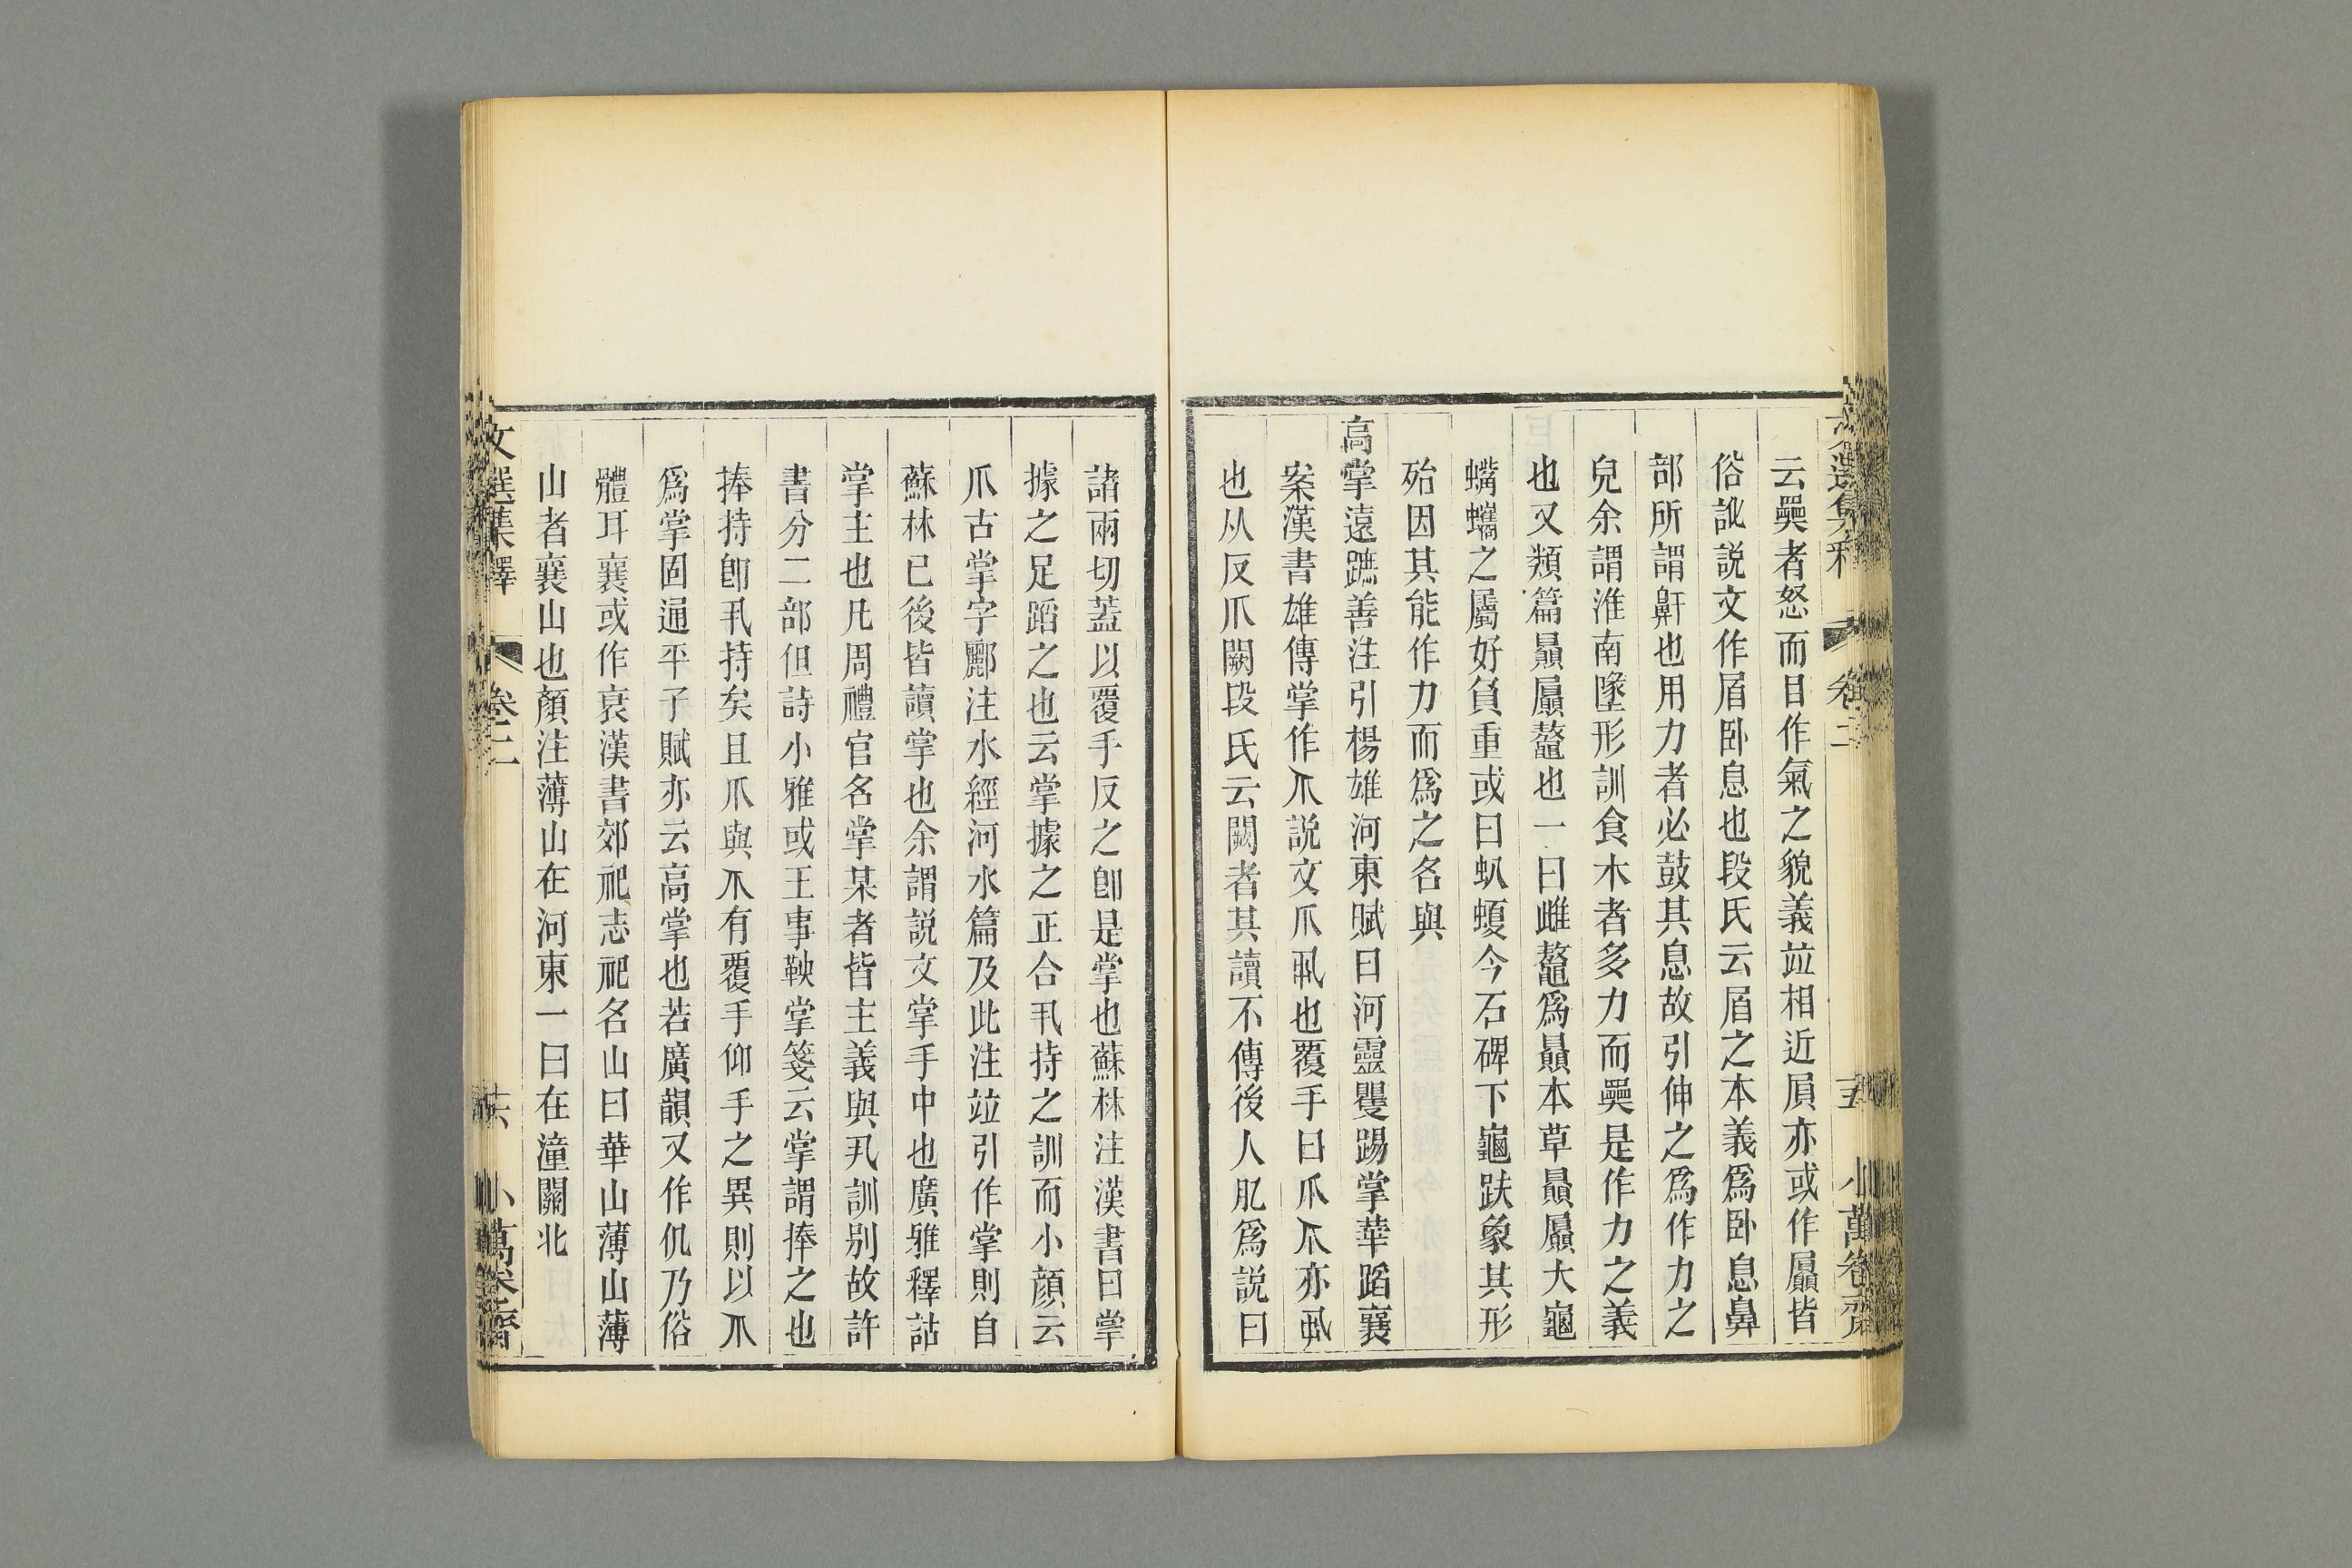 文選集釋 卷二 五 小萬卷齋
云奰者怒而目作氣之貌義竝相近屓亦或作屭皆
俗訛説文作眉卧息也段氏云眉之本義爲卧息鼻
部所謂鼾也用力者必鼓其息故引伸之爲作力之
皃余謂淮南墬形訓食木者多力而奰是作力之義
也又類篇贔屭鼇也一曰雌鼇爲贔本草贔屭大龜
蟕蠵之屬好負重或曰虯蝮今石碑下龜趺象其形
殆因其能作力而爲之名與
高掌遠蹠善注引楊雄河東賦曰河靈矍踢掌華蹈襄
案漢書雄傳掌作爪説文爪丮也覆手曰爪𤓯亦丮
也从反爪闕段氏云闕者其讀不傳後人肊爲説曰
諸兩切蓋以覆手反之卽是掌也蘇林注漢書曰掌
據之足蹈之也云掌據之正合丮持之訓而小顔云
爪古掌字酈注水經河水篇及此注竝引作掌則自
蘇林已後皆讀掌也余謂説文掌手中也廣雅釋詁
掌主也凡周禮官名掌某者皆主義與丮訓别故許
書分二部但詩小雅或王事鞅掌箋云掌謂捧之也
捧持卽丮持矣且爪與𤓯有覆手仰手之異則以𤓯
爲掌固通平子賦亦云高掌也若廣韻又作仉乃俗
體耳襄或作衰漢書郊祀志祀名山曰華山薄山薄
山者襄山也顏注薄山在河東一曰在潼關北
文選集釋 卷二 六 小萬卷齋